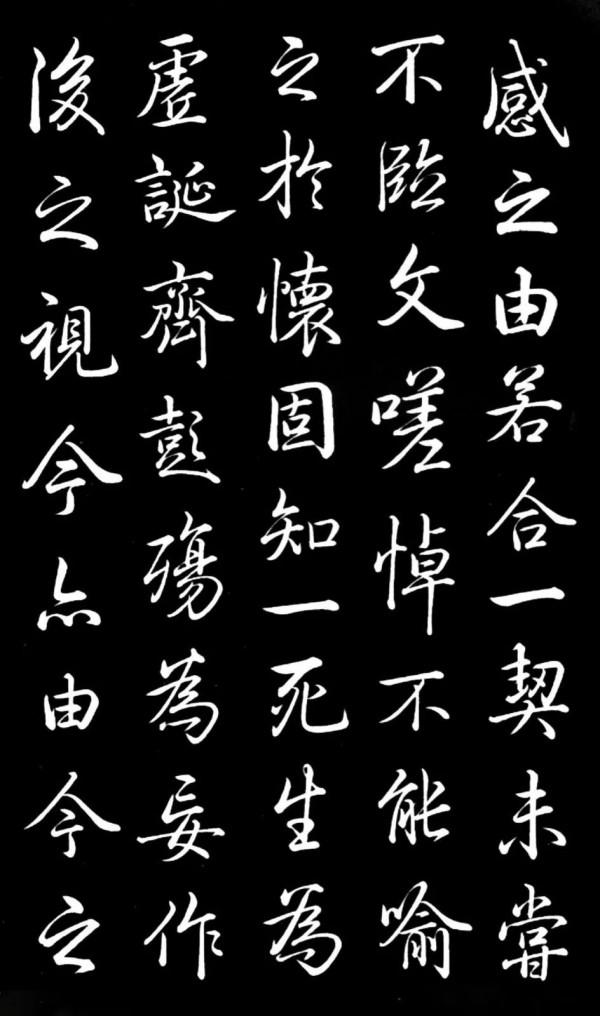 感之由若合一契未嘗
不臨文嗟悼不能喻
之於懷固知一死生為
虛誕齊彭殤為妄作
後之視今亦由今之